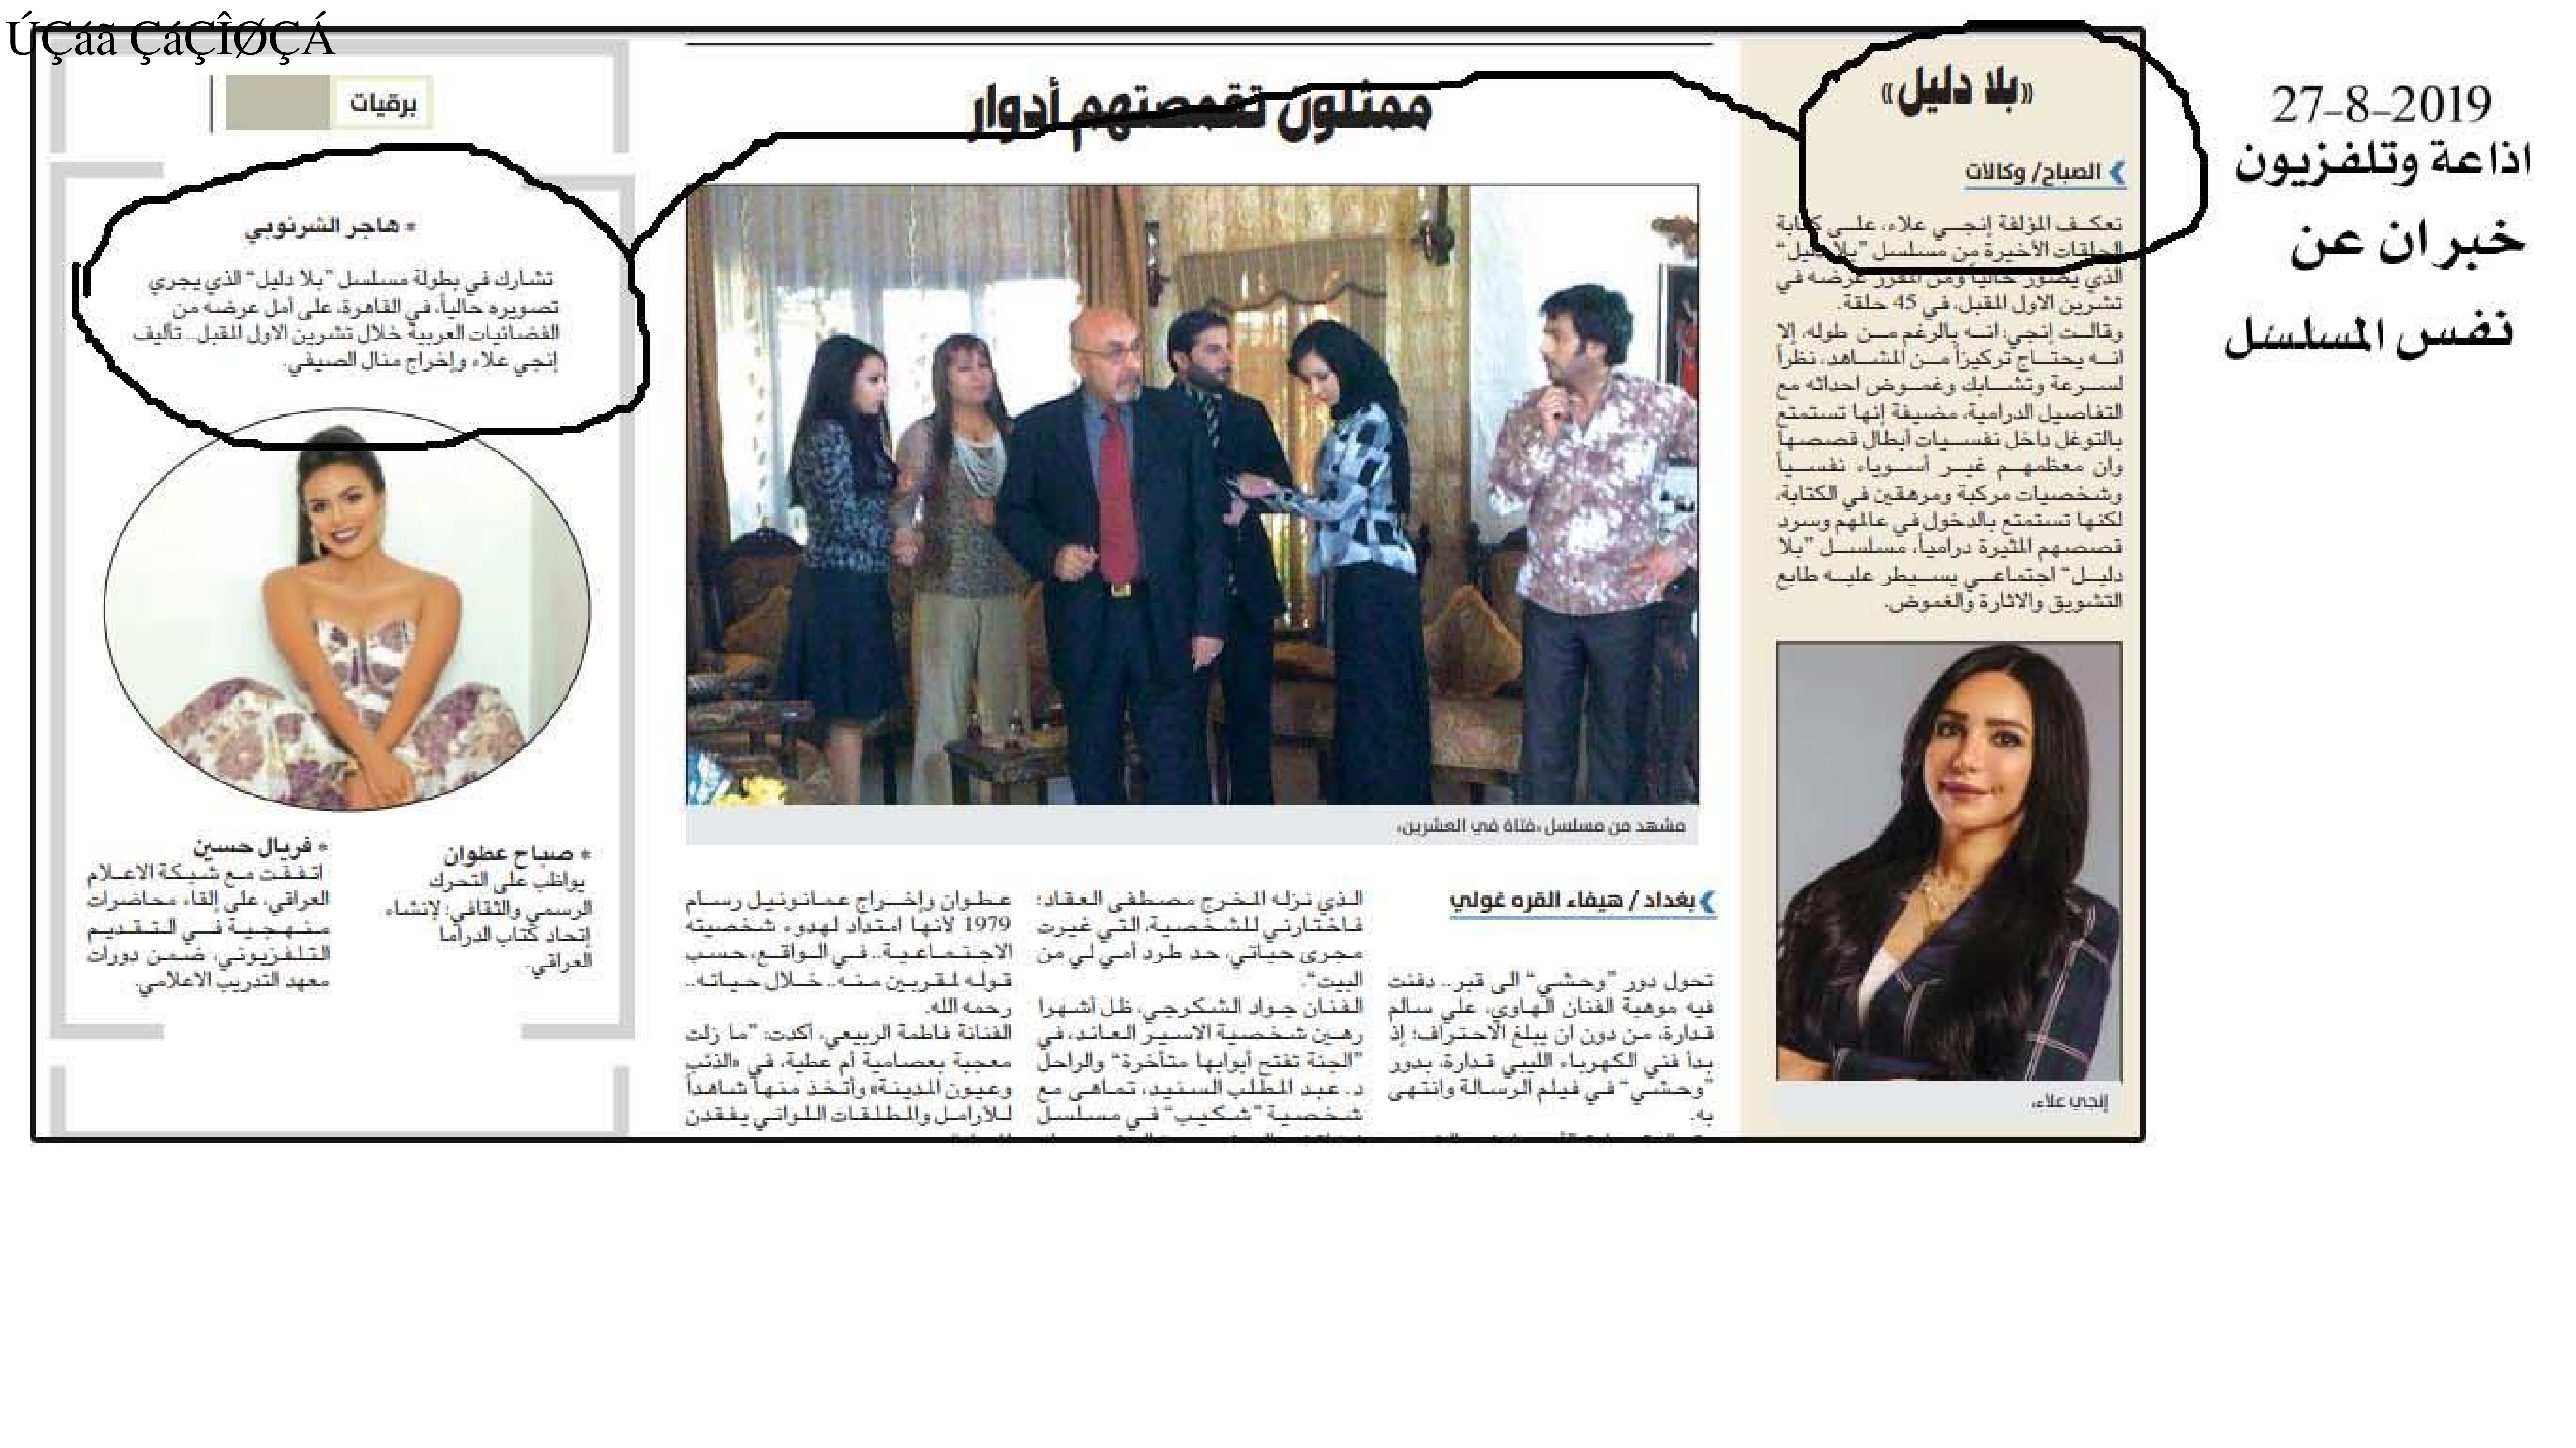 ÚÇáã ÇáÇÎØÇÁ
27-8-2019
اذاعة وتلفزيون
خبران عن
نفس المسلسل
«بلا دليل»
الصباح/ وكالات
تعكف المؤلفة إنجي علاء، على كتابة
الحلقات الأخيرة من مسلسل "بلا دليل"
الذي يصور حالياً ومن المقرر عرضه في
تشرين الاول المقبل، في 45 حلقة.
وقالت إنجي: انه بالرغم من طوله، إلا
انه يحتاج تركيزاً من المشاهد، نظراً
لسرعة وتشابك وغموض احداثه مع
التفاصيل الدرامية، مضيفة إنها تستمتع
بالتوغل داخل نفسيات أبطال قصصها
وان معظمهم غير أسوياء نفسياً
وشخصيات مركبة ومرهقين في الكتابة،
لكنها تستمتع بالدخول في عالمهم وسرد
قصصهم المثيرة درامياً، مسلسل "بلا
دليل" اجتماعي يسيطر عليه طابع
التشويق والاثارة والغموض.
إنجي علاء
ممثلون تقمصتهم أدوار
مشهد من مسلسل «فتاة في العشرين»
بغداد / هيفاء القره غولي
تحول دور "وحشي" الى قبر.. دفنت
فيه موهبة الفنان الهاوي، علي سالم
قدارة، من دون ان يبلغ الاحتراف؛ إذ
بدأ فني الكهرباء الليبي قدارة، بدور
"وحشي" في فيلم الرسالة وانتهى
به.
الذي نزله المخرج مصطفى العقاد؛
فاختارني للشخصية، التي غيرت
مجرى حياتي، حد طرد أمي لي من
البيت".
الفنان جواد الشكرجي، ظل أشهرا
رهين شخصية الاسير العائد، في
"الجنة تفتح أبوابها متأخرة" والراحل
د. عبد المطلب السنيد، تماهى مع
شخصية "شكيب" في مسلسل
عطوان وإخراج عمانوئيل رسام
1979 لأنها امتداد لهدوء شخصيته
الاجتماعية.. في الواقع، حسب
قوله لمقربين منه.. خلال حياته..
رحمه الله.
الفنانة فاطمة الربيعي، أكدت: "ما زلت
معجبة بعصامية أم عطية، في «الذئب
وعيون المدينة» وأتخذ منها شاهداً
للارامل والمطلقات اللواتي يفقدن
برقيات
* هاجر الشرنوبي
تشارك في بطولة مسلسل "بلا دليل" الذي يجري
تصويره حالياً، في القاهرة، على أمل عرضه من
الفضائيات العربية خلال تشرين الاول المقبل.. تأليف
إنجي علاء وإخراج منال الصيفي.
* صباح عطوان
يواظب على التحرك
الرسمي والثقافي؛ لإنشاء
إتحاد كتاب الدراما
العراقي.
* فريال حسين
اتفقت مع شبكة الاعلام
العراقي، على إلقاء محاضرات
منهجية في التقديم
التلفزيوني، ضمن دورات
معهد التدريب الاعلامي.